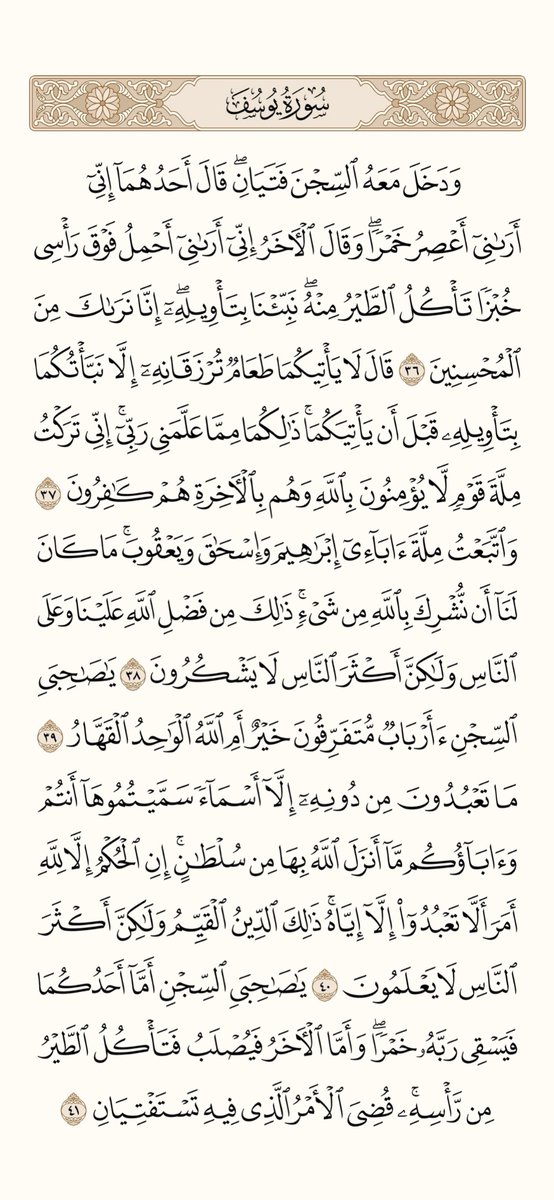 سُورَةُ يُوسُفَ
وَدَخَلَ مَعَهُ ٱلسِّجۡنَ فَتَيَانِۖ قَالَ أَحَدُهُمَآ إِنِّيٓ
أَرَىٰنِيٓ أَعۡصِرُ خَمۡرٗاۖ وَقَالَ ٱلۡأٓخَرُ إِنِّيٓ أَرَىٰنِيٓ أَحۡمِلُ فَوۡقَ رَأۡسِي
خُبۡزٗا تَأۡكُلُ ٱلطَّيۡرُ مِنۡهُۖ نَبِّئۡنَا بِتَأۡوِيلِهِۦٓۖ إِنَّا نَرَىٰكَ مِنَ
ٱلۡمُحۡسِنِينَ ٣٦ قَالَ لَا يَأۡتِيكُمَا طَعَامٞ تُرۡزَقَانِهِۦٓ إِلَّا نَبَّأۡتُكُمَا
بِتَأۡوِيلِهِۦ قَبۡلَ أَن يَأۡتِيَكُمَاۚ ذَٰلِكُمَا مِمَّا عَلَّمَنِي رَبِّيٓۚ إِنِّي تَرَكۡتُ
مِلَّةَ قَوۡمٖ لَّا يُؤۡمِنُونَ بِٱللَّهِ وَهُم بِٱلۡأٓخِرَةِ هُمۡ كَٰفِرُونَ ٣٧
وَٱتَّبَعۡتُ مِلَّةَ ءَابَآءِيٓ إِبۡرَٰهِيمَ وَإِسۡحَٰقَ وَيَعۡقُوبَۚ مَا كَانَ
لَنَآ أَن نُّشۡرِكَ بِٱللَّهِ مِن شَيۡءٖۚ ذَٰلِكَ مِن فَضۡلِ ٱللَّهِ عَلَيۡنَا وَعَلَى
ٱلنَّاسِ وَلَٰكِنَّ أَكۡثَرَ ٱلنَّاسِ لَا يَشۡكُرُونَ ٣٨ يَٰصَٰحِبَيِ
ٱلسِّجۡنِ ءَأَرۡبَابٞ مُّتَفَرِّقُونَ خَيۡرٌ أَمِ ٱللَّهُ ٱلۡوَٰحِدُ ٱلۡقَهَّارُ ٣٩
مَا تَعۡبُدُونَ مِن دُونِهِۦٓ إِلَّآ أَسۡمَآءٗ سَمَّيۡتُمُوهَآ أَنتُمۡ
وَءَابَآؤُكُم مَّآ أَنزَلَ ٱللَّهُ بِهَا مِن سُلۡطَٰنٍۚ إِنِ ٱلۡحُكۡمُ إِلَّا لِلَّهِ
أَمَرَ أَلَّا تَعۡبُدُوٓاْ إِلَّآ إِيَّاهُۚ ذَٰلِكَ ٱلدِّينُ ٱلۡقَيِّمُ وَلَٰكِنَّ أَكۡثَرَ
ٱلنَّاسِ لَا يَعۡلَمُونَ ٤٠ يَٰصَٰحِبَيِ ٱلسِّجۡنِ أَمَّآ أَحَدُكُمَا
فَيَسۡقِي رَبَّهُۥ خَمۡرٗاۖ وَأَمَّا ٱلۡأٓخَرُ فَيُصۡلَبُ فَتَأۡكُلُ ٱلطَّيۡرُ
مِن رَّأۡسِهِۦۚ قُضِيَ ٱلۡأَمۡرُ ٱلَّذِي فِيهِ تَسۡتَفۡتِيَانِ ٤١